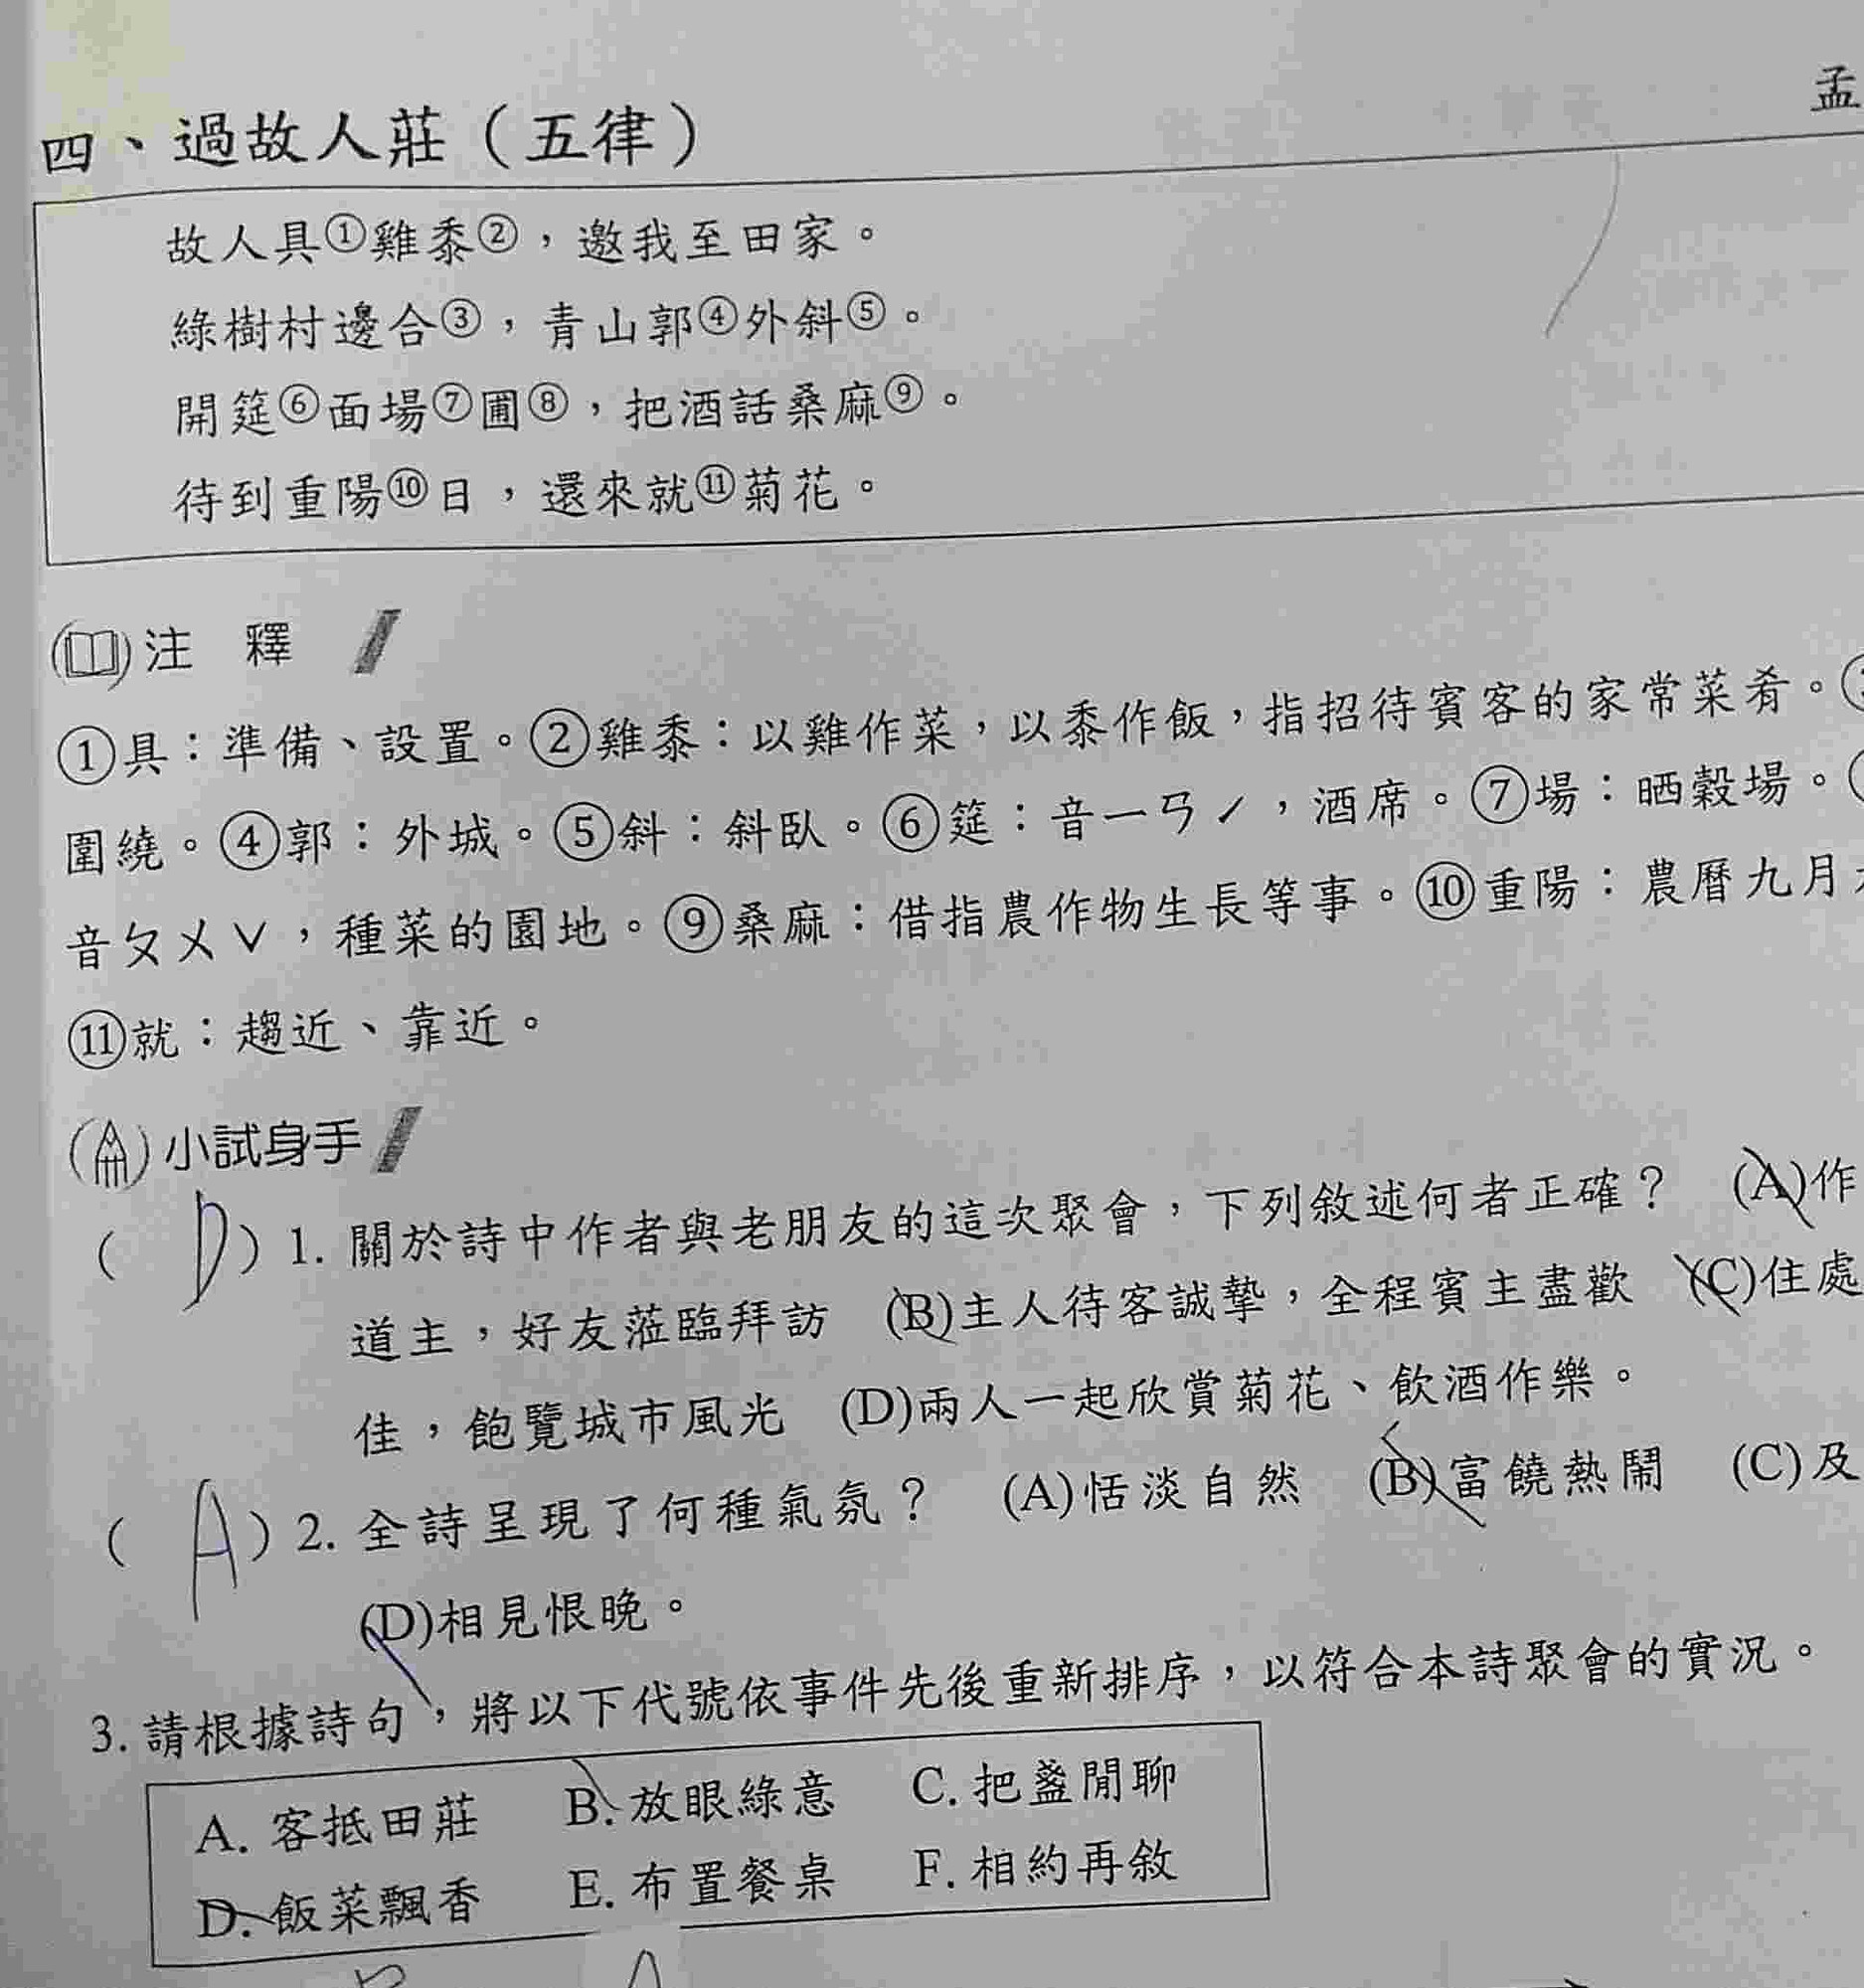 四、過故人莊（五律）
孟
故人具①雞黍②，邀我至田家。
綠樹村邊合③，青山郭④外斜⑤。
開筵⑥面場⑦圃⑧，把酒話桑麻⑨。
待到重陽⑩日，還來就⑪菊花。
注 釋
①具：準備、設置。②雞黍：以雞作菜，以黍作飯，指招待賓客的家常菜肴。
圍繞。④郭：外城。⑤斜：斜臥。⑥筵：音ㄧㄢˊ，酒席。⑦場：晒穀場。
音ㄆㄨˇ，種菜的園地。⑨桑麻：借指農作物生長等事。⑩重陽：農曆九月
⑪就：趨近、靠近。
小試身手
（D）1. 關於詩中作者與老朋友的這次聚會，下列敘述何者正確？ (A)作
道主，好友蒞臨拜訪 (B)主人待客誠摯，全程賓主盡歡 (C)住處
佳，飽覽城市風光 (D)兩人一起欣賞菊花、飲酒作樂。
（A）2. 全詩呈現了何種氣氛？ (A)恬淡自然 (B)富饒熱鬧 (C)及
(D)相見恨晚。
3. 請根據詩句，將以下代號依事件先後重新排序，以符合本詩聚會的實況。
A. 客抵田莊 B. 放眼綠意 C. 把盞閒聊
D. 飯菜飄香 E. 布置餐桌 F. 相約再敘